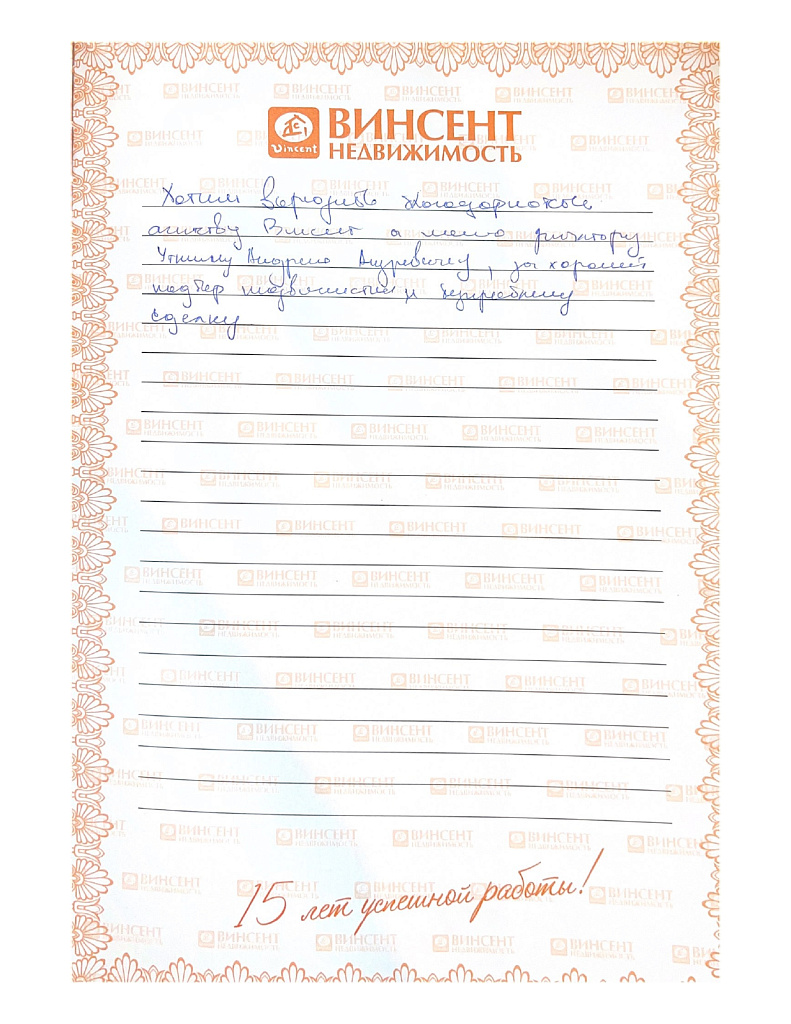 ВИНСЕНТ
НЕДВИЖИМОСТЬ
Vincent
Хотим выразить благодарность
агентству Винсент а риэлтору
Андрею Андреевичу, за хороший
подбор недвижимости и
сделку
15 лет успешной работы!